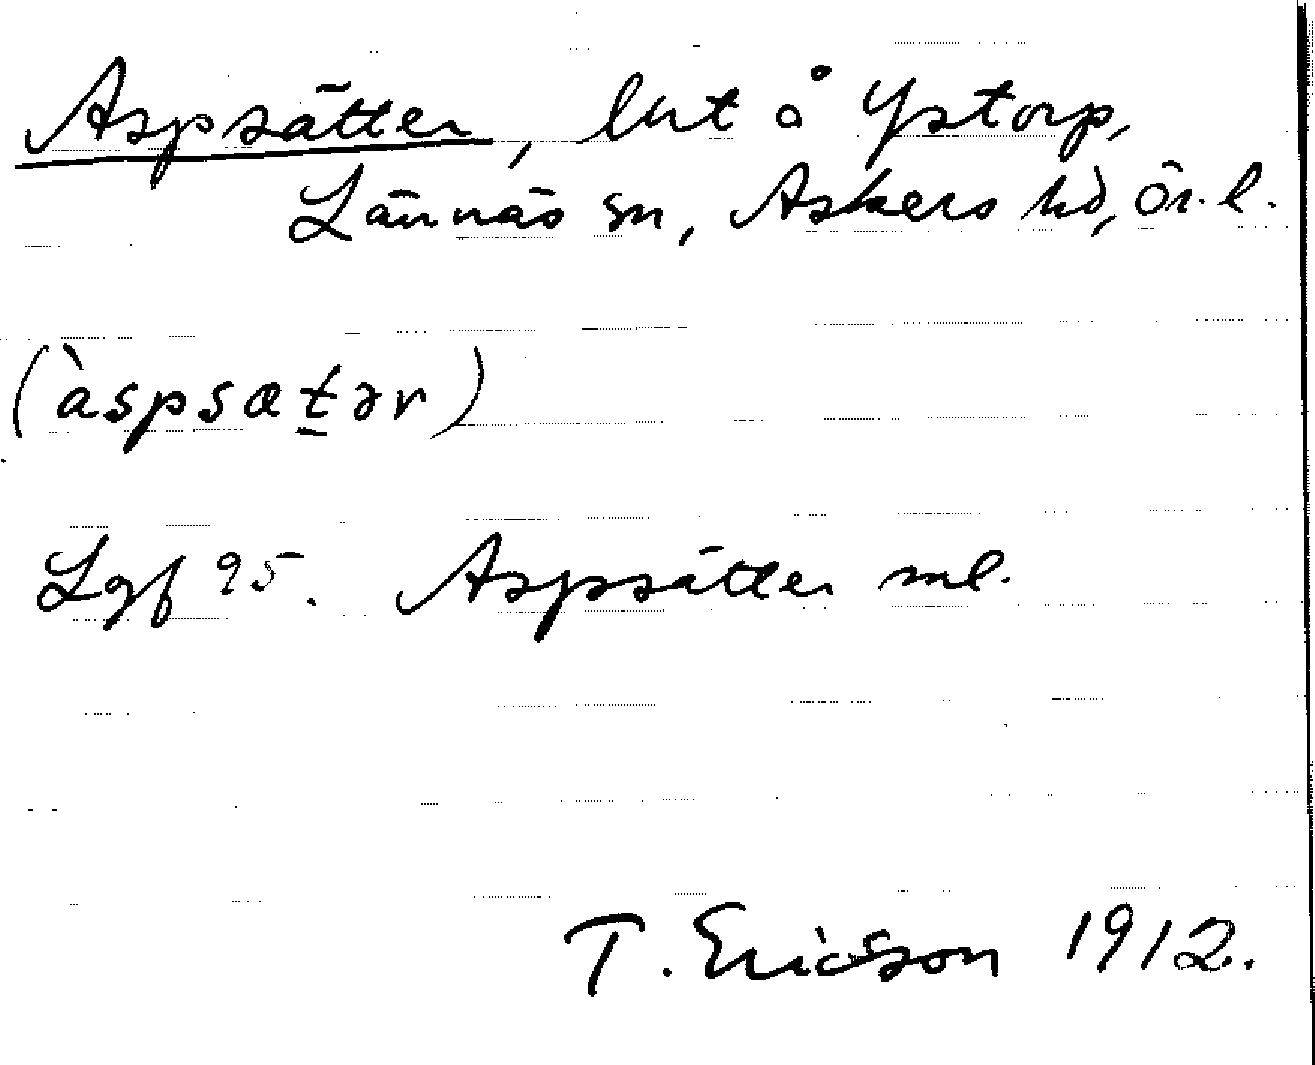 Aspsätter, lht å Ystorp,
Lännäs sn, Askers hd, Ör. l.
(àspsæt̲ər)
Lgf 95. Aspsätter ml.
T. Ericson 1912.